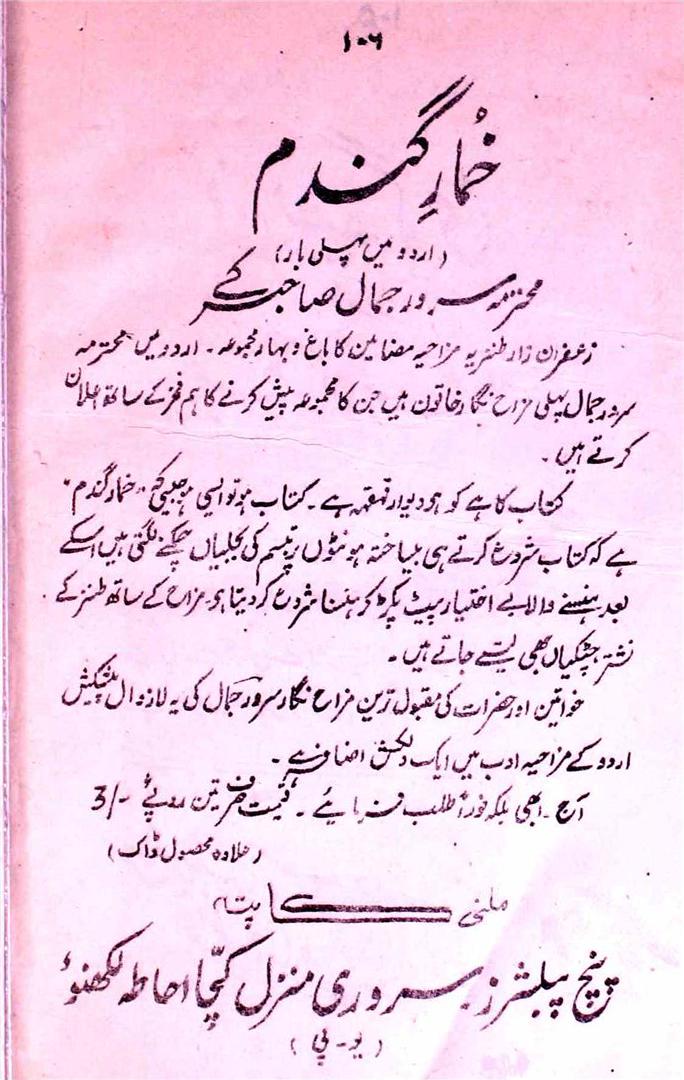 ۱۰۶
خُمارِ گندم
(اردو میں پہلی بار)
محترمہ سرور جمال صاحبہ کے
زعفران زار طنزیہ مزاحیہ مضامین کا باغ و بہار مجموعہ ۔ اردو میں محترمہ
سرور جمال پہلی مزاح نگار خاتون ہیں جن کا مجموعہ پیش کرنے کا ہم فخر کے ساتھ اعلان
کرتے ہیں ۔
کتاب کا ہے کو ہو دیوار قہقہہ ہے ۔ کتاب ہو تو ایسی ہو جیسی کہ "خمار گندم"
ہے کہ کتاب شروع کرتے ہی بیساختہ ہونٹوں پر تبسم کی بجلیاں چمکنے لگتی ہیں اسکے
بعد ہنسنے والا بے اختیار پیٹ پکڑ کر ہنسنا شروع کر دیتا ہو مزاح کے ساتھ طنز کے
نشتر چٹکیاں بھی لیتے جاتے ہیں ۔
خواتین اور حضرات کی مقبول ترین مزاح نگار سرور جمال کی یہ لازوال پیشکش
اردو کے مزاحیہ ادب میں ایک دلکش اضافہ ہے ۔
آج ۔ ابھی بلکہ فوراً طلب فرمایئے ۔ قیمت صرف تین روپئے 3/-
(علاوہ محصول ڈاک)
ملنے کا پتہ
پنچ پبلشرز ۔ سروری منزل کچّا احاطہ لکھنؤ
(یو ۔ پی)